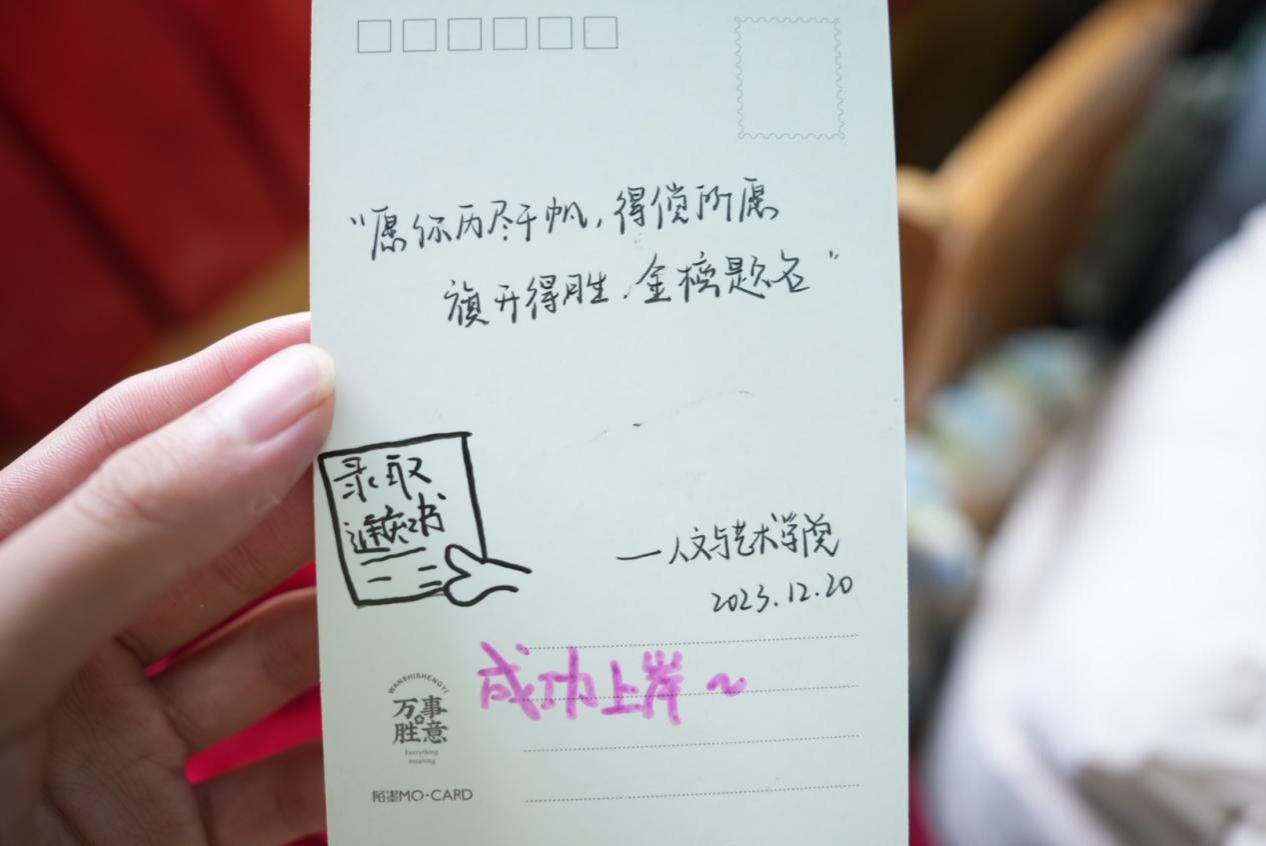 “愿你历尽千帆，得偿所愿
旗开得胜，金榜题名”
录取
通知书
—人文与艺术学院
2023.12.20
成功上岸~
WANSHISHENGYI
万事
胜意
Everything
meaning
陌墨MO·CARD